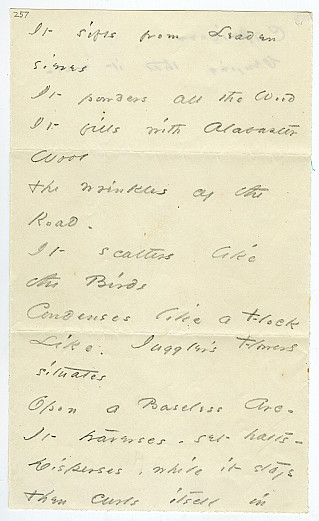 257
It sifts from Leaden
sieves
It powders all the Wood
It fills with Alabaster
Wool
the wrinkles of the
Road.
It scatters like
the Birds
Condenses like a Flock
Like. Juggler's Flowers
situates
Opon a Baseless Arc -
It traverses. yet halts -
Disperses, while it stops
then curls itself in